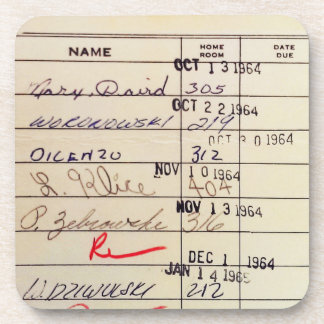 NAME HOME ROOM DATE DUE
OCT 1 3 1964
Gary, David 305
OCT 2 2 1964
WORONOWSKI 219
OCT 3 0 1964
DICENZO 312
NOV 1 0 1964
L. Klice 404
NOV 1 3 1964
P. Zebrowski 316
Re
DEC 1 1964
JAN 1 4 1965
W. DZIWULSKI 212